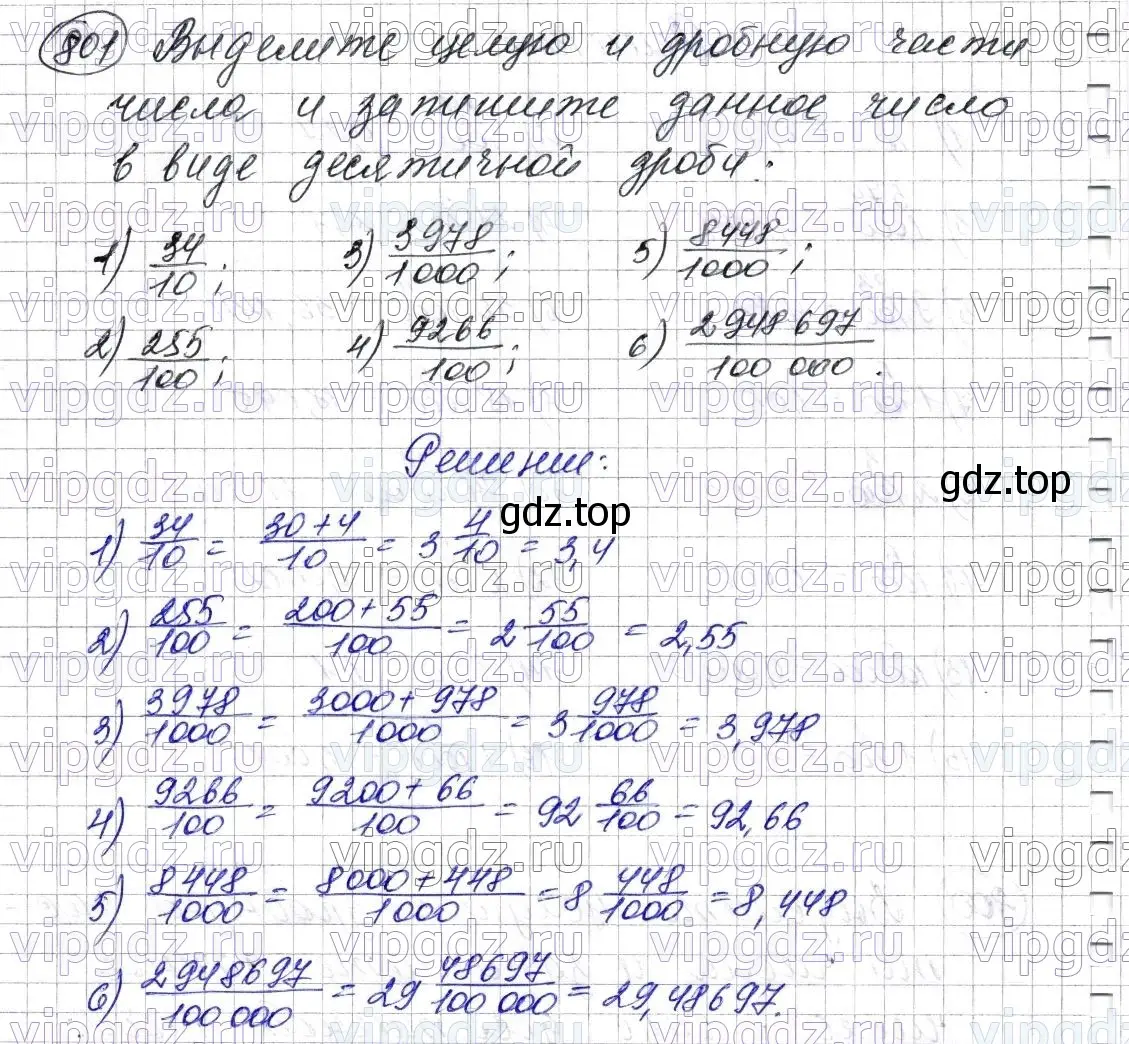 801 Выделите целую и дробную части
числа и запишите данное число
в виде десятичной дроби:
1) 34/10; 3) 3978/1000; 5) 8448/1000;
2) 255/100; 4) 9266/100; 6) 2948697/100 000.
Решение:
gdz.top
gdz.top
1) 34/10 = (30+4)/10 = 3 4/10 = 3,4
2) 255/100 = (200+55)/100 = 2 55/100 = 2,55
3) 3978/1000 = (3000+978)/1000 = 3 978/1000 = 3,978
4) 9266/100 = (9200+66)/100 = 92 66/100 = 92,66
5) 8448/1000 = (8000+448)/1000 = 8 448/1000 = 8,448
6) 2948697/100 000 = 29 48697/100 000 = 29,48697.
vipgdz.ru